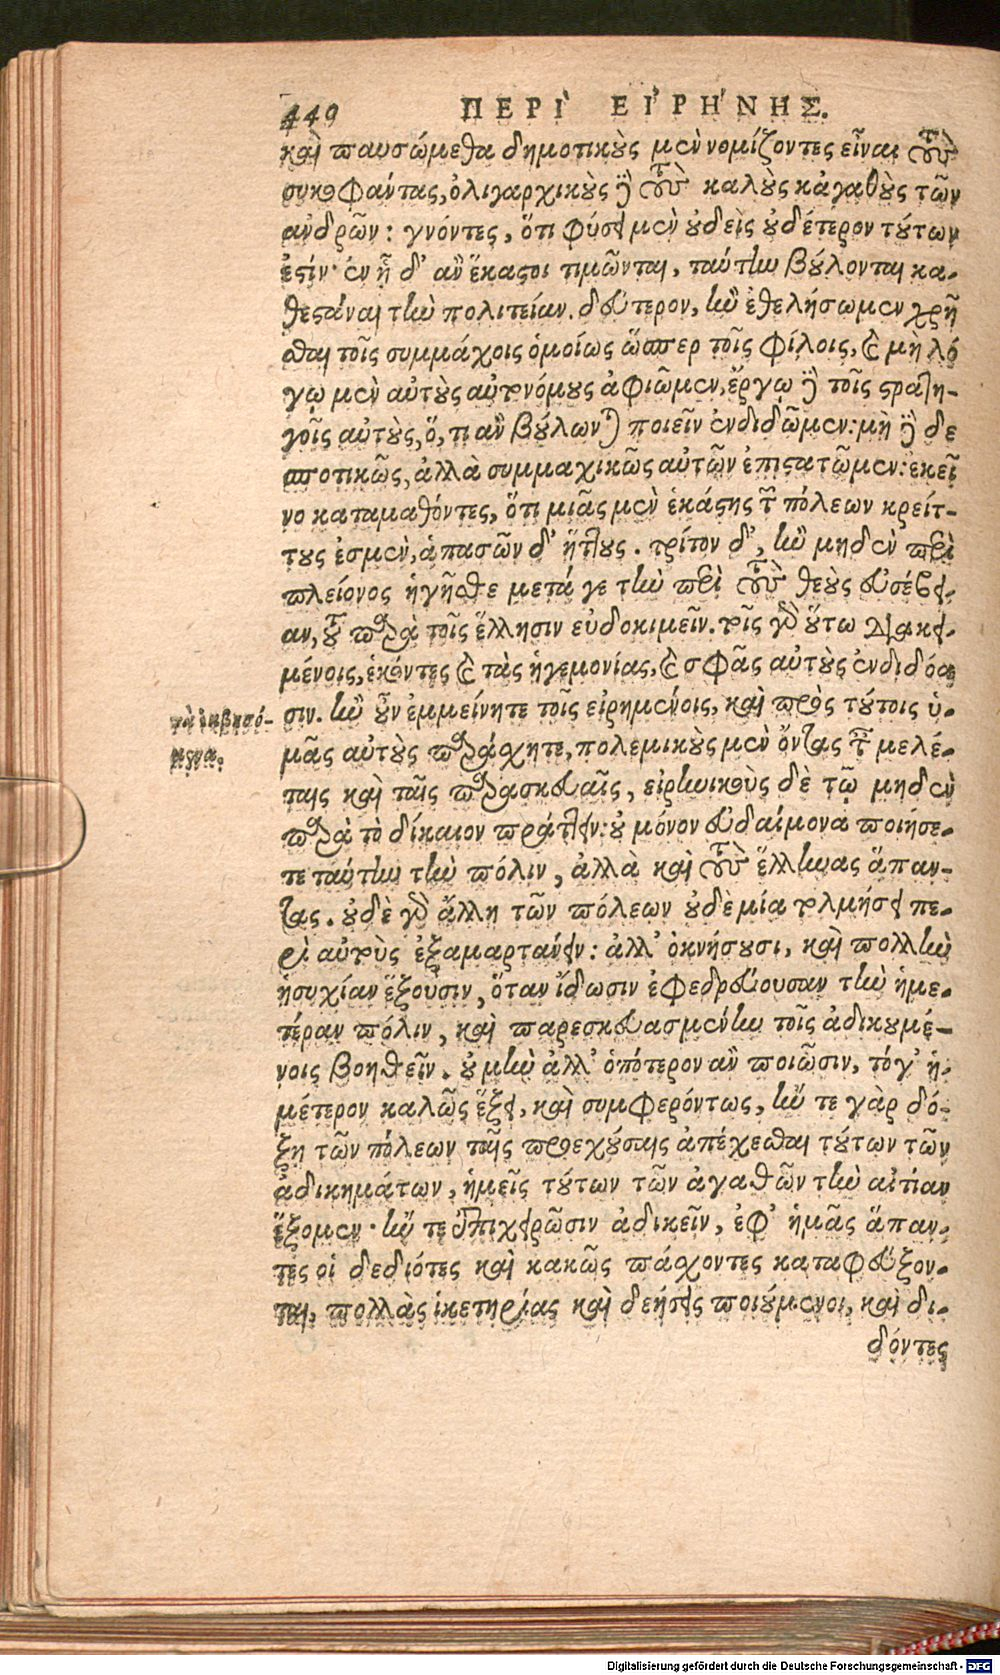 449 ΠΕΡῚ ΕἸΡΉΝΗΣ.
καὶ παυσώμεθα δημοτικοὺς μὲν νομίζοντες εἶναι τοὺς
συκοφάντας, ὀλιγαρχικοὺς δὲ τοὺς καλοὺς κἀγαθοὺς τῶν
ἀνδρῶν: γνόντες, ὅτι φύσει μὲν οὐδεὶς οὐδέτερον τούτων
ἐστίν· ἐν ᾗ δ' ἂν ἕκαστοι τιμῶνται, ταύτην βούλονται κα-
θεστάναι τὴν πολιτείαν. δεύτερον, ἢν ἐθελήσωμεν χρῆ
σθαι τοῖς συμμάχοις ὁμοίως ὥσπερ τοῖς φίλοις, καὶ μὴ λό
γῳ μὲν αὐτοὺς αὐτονόμους ἀφιῶμεν, ἔργῳ δὲ τοῖς στρατη-
γοῖς αὐτοὺς, ὅ, τι ἂν βούλωνται ποιεῖν ἐνδιδῶμεν: μὴ δὲ δε
σποτικῶς, ἀλλὰ συμμαχικῶς αὐτῶν ἐπιστατῶμεν: ἐκεῖ
νο καταμαθόντες, ὅτι μιᾶς μὲν ἑκάστης τῶν πόλεων κρείτ-
τους ἐσμὲν, ἁπασῶν δ' ἥττους. τρίτον δ', ἢν μηδὲν περὶ
πλείονος ἡγῆσθε μετά γε τὴν περὶ τοὺς θεοὺς εὐσέβει-
αν, τοῦ παρὰ τοῖς ἕλλησιν εὐδοκιμεῖν. τοῖς γὰρ οὕτω διακει-
μένοις, ἑκόντες καὶ τὰς ἡγεμονίας, καὶ σφᾶς αὐτοὺς ἐνδιδόα
σιν. ἢν οὖν ἐμμείνητε τοῖς εἰρημένοις, καὶ πρὸς τούτοις ὑ-
τὰ ἐκβησό-
μενα.
μᾶς αὐτοὺς παράχητε, πολεμικοὺς μὲν ὄντας ταῖς μελέ-
ταις καὶ ταῖς παρασκευαῖς, εἰρηνικοὺς δὲ τῷ μηδὲν
παρὰ τὸ δίκαιον πράττειν: οὐ μόνον εὐδαίμονα ποιήσε-
τε ταύτην τὴν πόλιν, ἀλλὰ καὶ τοὺς ἕλληνας ἅπαν-
τας. οὐδὲ γὰρ ἄλλη τῶν πόλεων οὐδεμία τολμήσει πε-
ρὶ αὐτοὺς ἐξαμαρτάνειν: ἀλλ' ὀκνήσουσι, καὶ πολλὴν
ἡσυχίαν ἕξουσιν, ὅταν ἴδωσιν ἐφεδρεύουσαν τὴν ἡμε-
τέραν πόλιν, καὶ παρεσκευασμένην τοῖς ἀδικουμέ-
νοις βοηθεῖν. οὐ μὴν ἀλλ' ὁπότερον ἂν ποιῶσιν, τόγ' ἡ-
μέτερον καλῶς ἕξει, καὶ συμφερόντως, ἤν τε γὰρ δό-
ξῃ τῶν πόλεων ταῖς προεχούσαις ἀπέχεσθαι τούτων τῶν
ἀδικημάτων, ἡμεῖς τούτων τῶν ἀγαθῶν τὴν αἰτίαν
ἕξομεν· ἤν τε ἐπιχειρῶσιν ἀδικεῖν, ἐφ' ἡμᾶς ἅπαν-
τες οἱ δεδιότες καὶ κακῶς πάχοντες καταφεύξον-
ται, πολλὰς ἱκετηρίας καὶ δεήσεις ποιούμενοι, καὶ δι-
δόντες
Digitalisierung gefördert durch die Deutsche Forschungsgemeinschaft - DFG